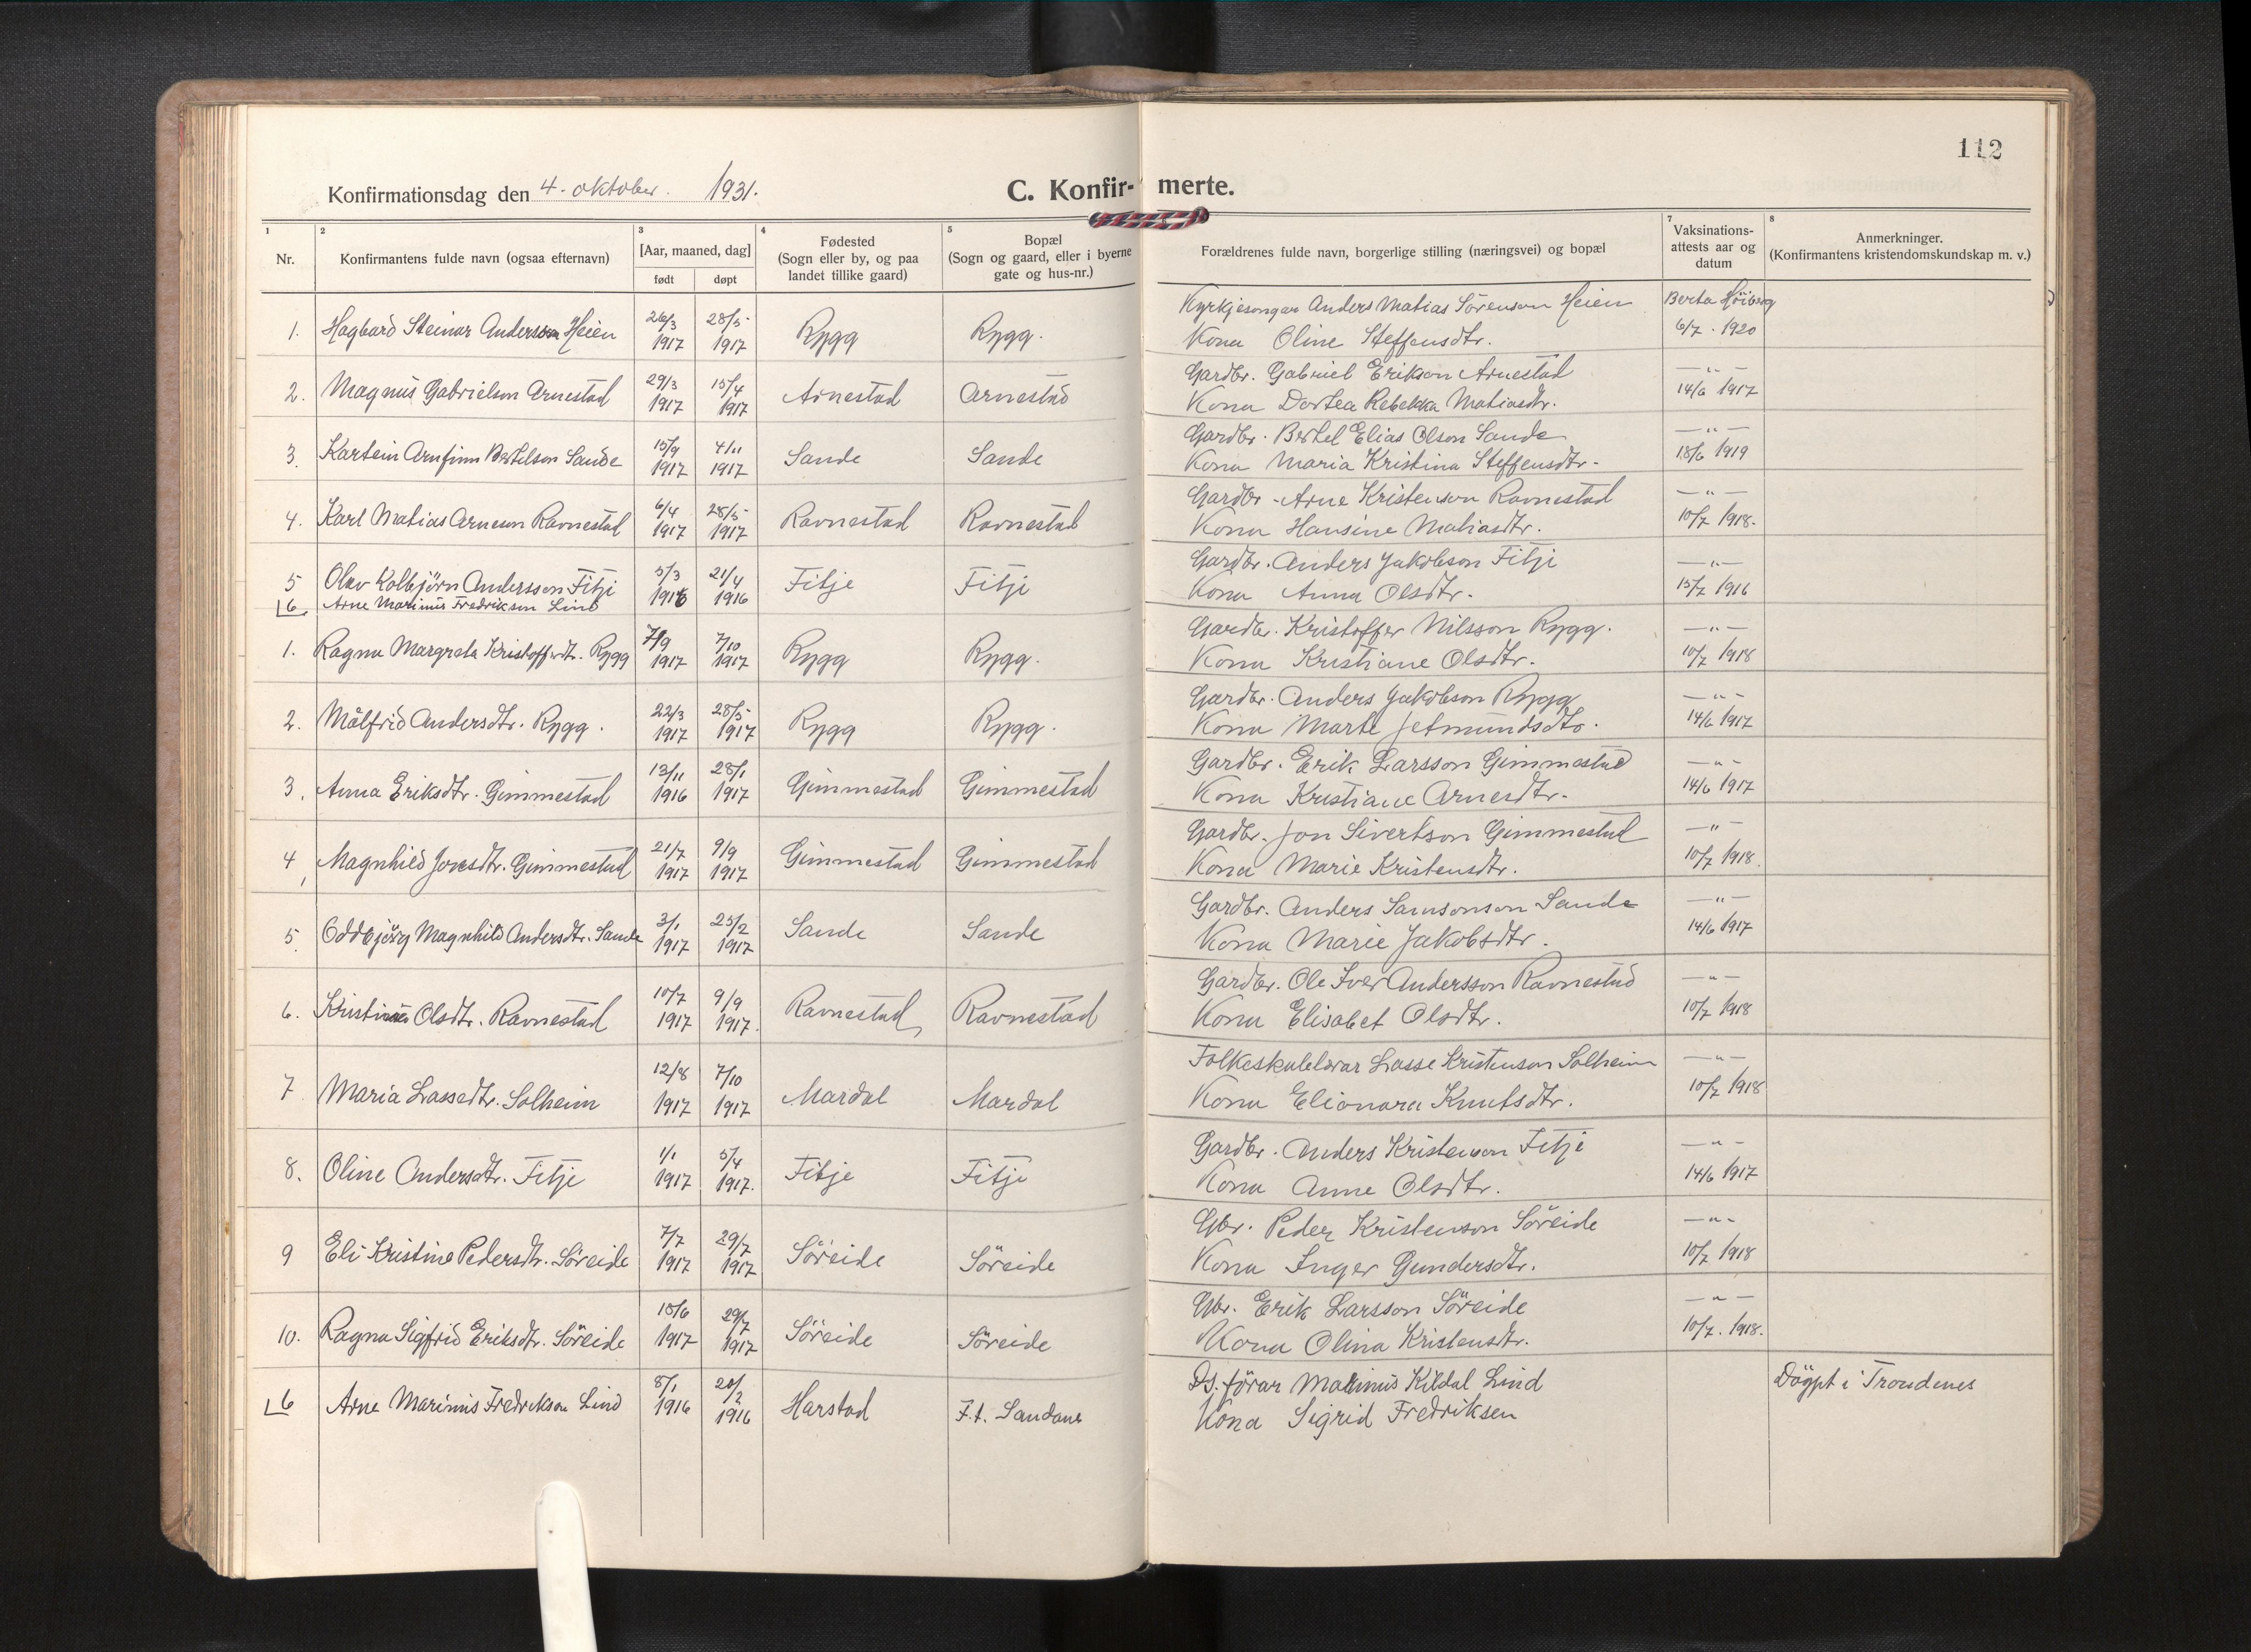 112
Konfirmationsdag den 4. oktober. 1931.
C. Konfir- merte.
1 2 3 4 5 7 8
Nr.
Konfirmantens fulde navn (ogsaa efternavn)
[Aar, maaned, dag]
født døpt
Fødested
(Sogn eller by, og paa
landet tillike gaard)
Bopæl
(Sogn og gaard, eller i byerne
gate og hus-nr.)
Forældrenes fulde navn, borgerlige stilling (næringsvei) og bopæl
Vaksinations-
attests aar og
datum
Anmerkninger.
(Konfirmantens kristendomskundskap m. v.)
26/3 28/5 Kyrkjesongar Anders Matias Sörenson Heien Berta Höiberg
1. Hagbard Steinar Anderson Heien 1917 1917 Rygg Rygg. Kona Oline Steffensdtr. 6/7 . 1920
29/3 15/4 Gardbr. Gabriel Erikson Arnestad — " —
2. Magnus Gabrielson Arnestad 1917 1917 Arnestad Arnestad Kona Dortea Rebekka Matiasdtr. 14/6 1917
15/9 4/11 Gardbr. Bertel Elias Olson Sande — " —
3. Kartein Arnfinn Bertelson Sande 1917 1917 Sande Sande Kona Maria Kristina Steffensdtr. 18/6 1919
6/4 28/5 Gardbr. Arne Kristenson Ravnestad — " —
4. Karl Matias Arneson Ravnestad 1917 1917 Ravnestad Ravnestad Kona Hansine Matiasdtr. 10/7 1918.
5/3 21/4 Gardbr. Anders Jakobson Fitje — " —
5 Olav Kolbjörn Andersson Fitje 1916 1916 Fitje Fitje Kona Anna Olsdtr. 15/7 1916
6 Arne Marinus Fredrikson Lind
7/9 7/10 Gardbr. Kristoffer Nilsson Rygg. — " —
1. Ragna Margreta Kristoffersdtr. Rygg 1917 1917 Rygg Rygg. Kona Kristiane Olsdtr. 10/7 1918
22/3 28/5 Gardbr. Anders Jakobson Rygg — " —
2. Målfrid Andersdtr. Rygg. 1917 1917 Rygg Rygg. Kona Marte Jetmundsdtr. 14/6 1917
13/11 28/1 Gardbr. Erik Larsson Gimmestad — " —
3. Anna Eriksdtr. Gimmestad 1916 1917 Gimmestad Gimmestad Kona Kristiane Arnesdtr. 14/6 1917
21/7 9/9 Gardbr. Jon Sivertson Gimmestad — " —
4, Magnhild Jonsdtr. Gimmestad 1917 1917 Gimmestad Gimmestad Kona Marie Kristensdtr. 10/7 1918.
3/1 25/2 Gardbr. Anders Samsonson Sande — " —
5. Oddbjörg Magnhild Andersdtr. Sande 1917 1917 Sande Sande Kona Marie Jakobsdtr. 14/6 1917
10/7 9/9 Gardbr. Ole Iver Andersson Ravnestad — " —
6. Olsdtr. Ravnestad 1917 1917. Ravnestad Ravnestad Kona Elisabet Olsdtr. 10/7 1918
12/8 7/10 Folkeskulelærar Lasse Kristenson Solheim — " —
7 Maria Lassedtr. Solheim 1917 1917 Mardal Mardal Kona Elionora Knutsdtr. 10/7 1918
1/1 5/4 Gardbr. Anders Kristenson Fitje — " —
8. Oline Andersdtr. Fitje 1917 1917. Fitje Fitje Kona Anne Olsdtr. 14/6 1917
7/7 29/7 Gbr. Peder Kristenson Söreide — " —
9 Eli Kristine Pedersdtr. Söreide 1917 1917 Söreide Söreide Kona Inger Gundersdtr. 10/7 1918
15/6 29/7 Gbr. Erik Larsson Söreide — " —
10. Ragna Sigfrid Eriksdtr. Söreide 1917 1917 Söreide Söreide Kona Olina Kristensdtr. 10/7. 1918.
8/1 20/2 Ds. förar Marinus Kildal Lind Döypt i Trondenes
6 Arne Marinus Fredrikson Lind 1916 1916 Harstad F.t. Sandane Kona Sigrid Fredriksen